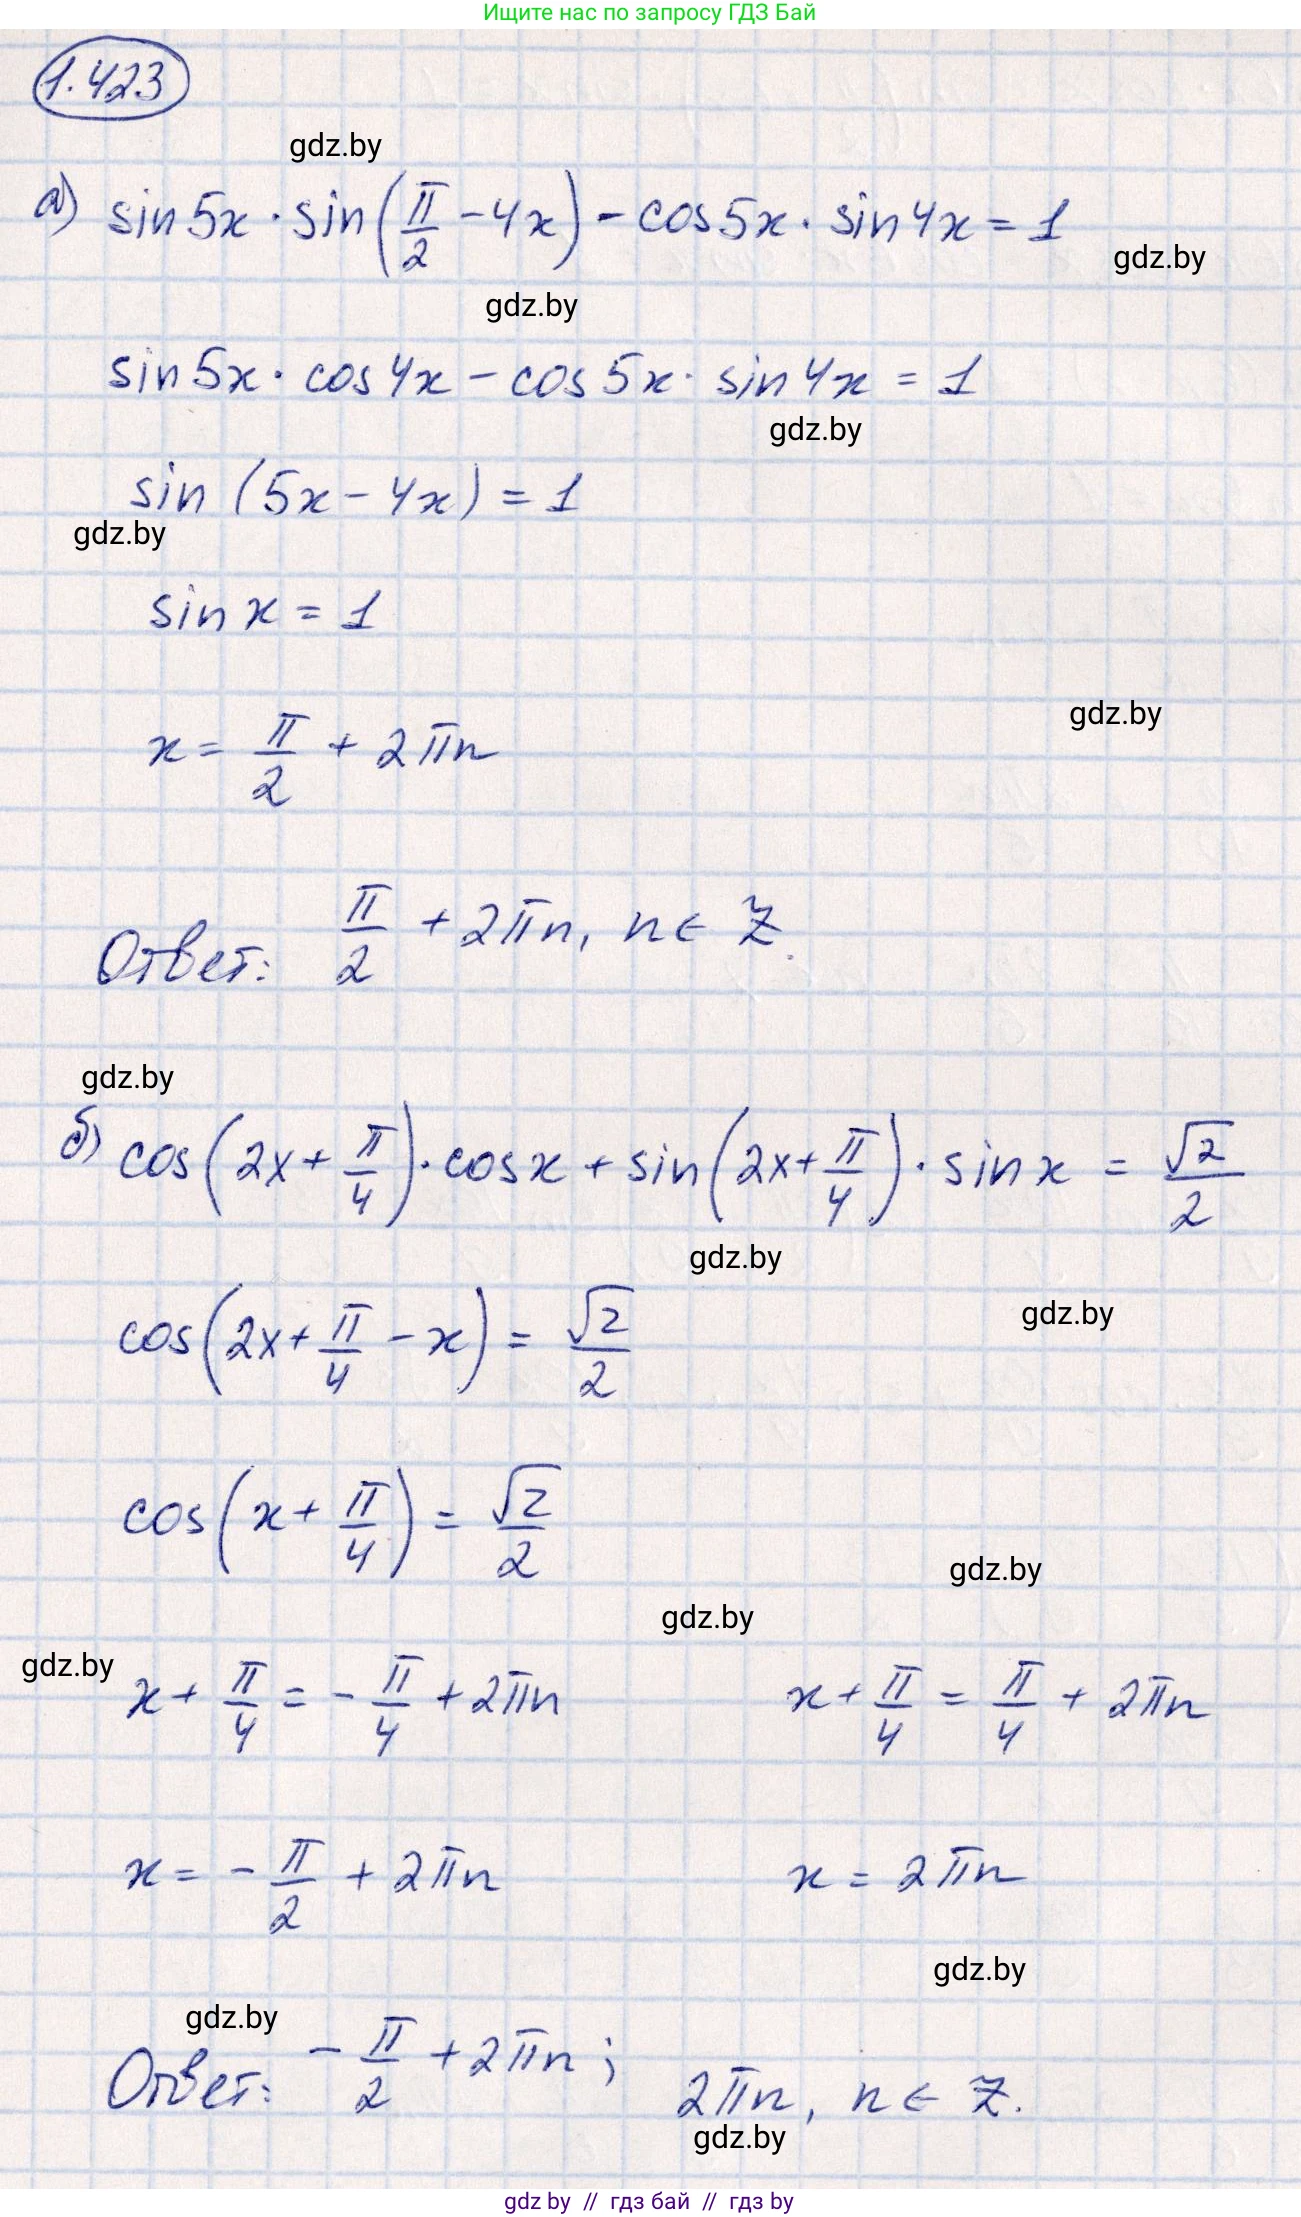 Ищите нас по запросу ГДЗ Бай
1.423
gdz.by
а) sin5x · sin(π/2 - 4x) - cos5x · sin4x = 1
gdz.by
gdz.by
sin5x · cos4x - cos5x · sin4x = 1
gdz.by
sin(5x - 4x) = 1
gdz.by
sin x = 1
gdz.by
x = π/2 + 2πn
Ответ: π/2 + 2πn, n ∈ Z.
gdz.by
б) cos(2x + π/4) · cosx + sin(2x + π/4) · sin x = √2/2
gdz.by
gdz.by
cos(2x + π/4 - x) = √2/2
cos(x + π/4) = √2/2
gdz.by
gdz.by
gdz.by
x + π/4 = -π/4 + 2πn x + π/4 = π/4 + 2πn
x = -π/2 + 2πn x = 2πn
gdz.by
gdz.by
Ответ: -π/2 + 2πn; 2πn, n ∈ Z.
gdz.by
gdz by // гдз бай // гдз by